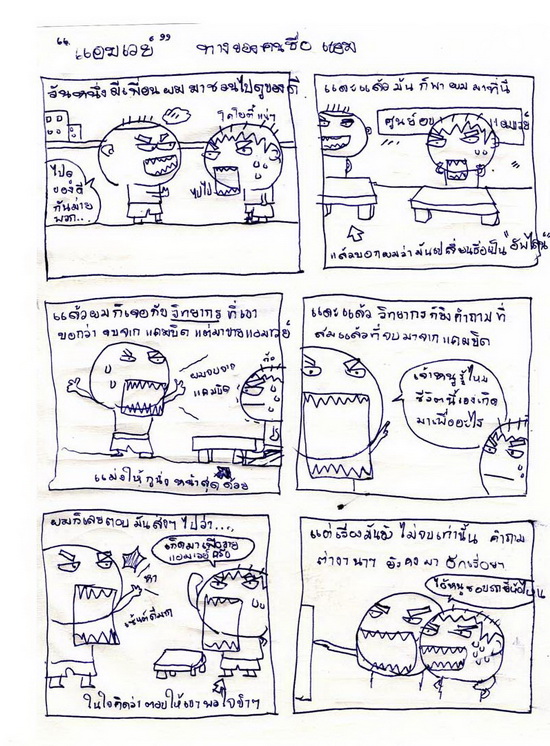 "แอมเวย์" ทางของคนชื่อ แอม
วันหนึ่ง มีเพื่อน ผม มาชวนไปดูของดี
โคโยตี้ แน่ๆ
ไปดู
ของดี
กันม่าย
พวก...
ไปไป
และแล้ว มัน ก็พา ผม มาที่นี่
ศูนย์อบ แอมเวย์
แล้วบอกผมว่า มันเปลี่ยนชื่อเป็น "อัพไลน์"
แล้วผมก็เจอกับ วิทยากร ที่เขา
บอกว่า จบจาก แคมบิด แต่มาขายแอมเวย์
ผมจบจาก
แคมบิด
แม่งให้ กูนั่ง หน้าสุด ด้วย
และแล้ว วิทยากรก็ถามคำถาม ที่
สมแล้วที่จบมาจาก แคมบิด
เจ้าหนูรู้ไหม
ชีวิตนี้เองเกิด
มาเพื่ออะไร
ผมก็เลยตอบ มันส่งๆ ไปว่า....
เกิดมาเพื่อขาย
แอมเวย์ ครับ
ในใจคิดว่า ตอบให้เขา พอใจขำๆ
แต่เรื่องมันยัง ไม่จบเท่านั้น คำถาม
ต่างๆ นาๆ ยังคงมา อีกเรื่อยๆ